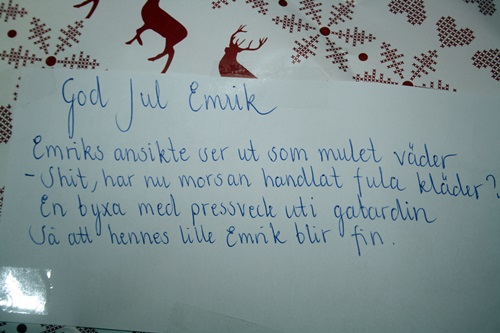 God Jul Emrik
Emriks ansikte ser ut som mulet väder
- Shit, har nu morsan handlat fula kläder?
En byxa med pressveck uti gabardin
Så att hennes lille Emrik blir fin.